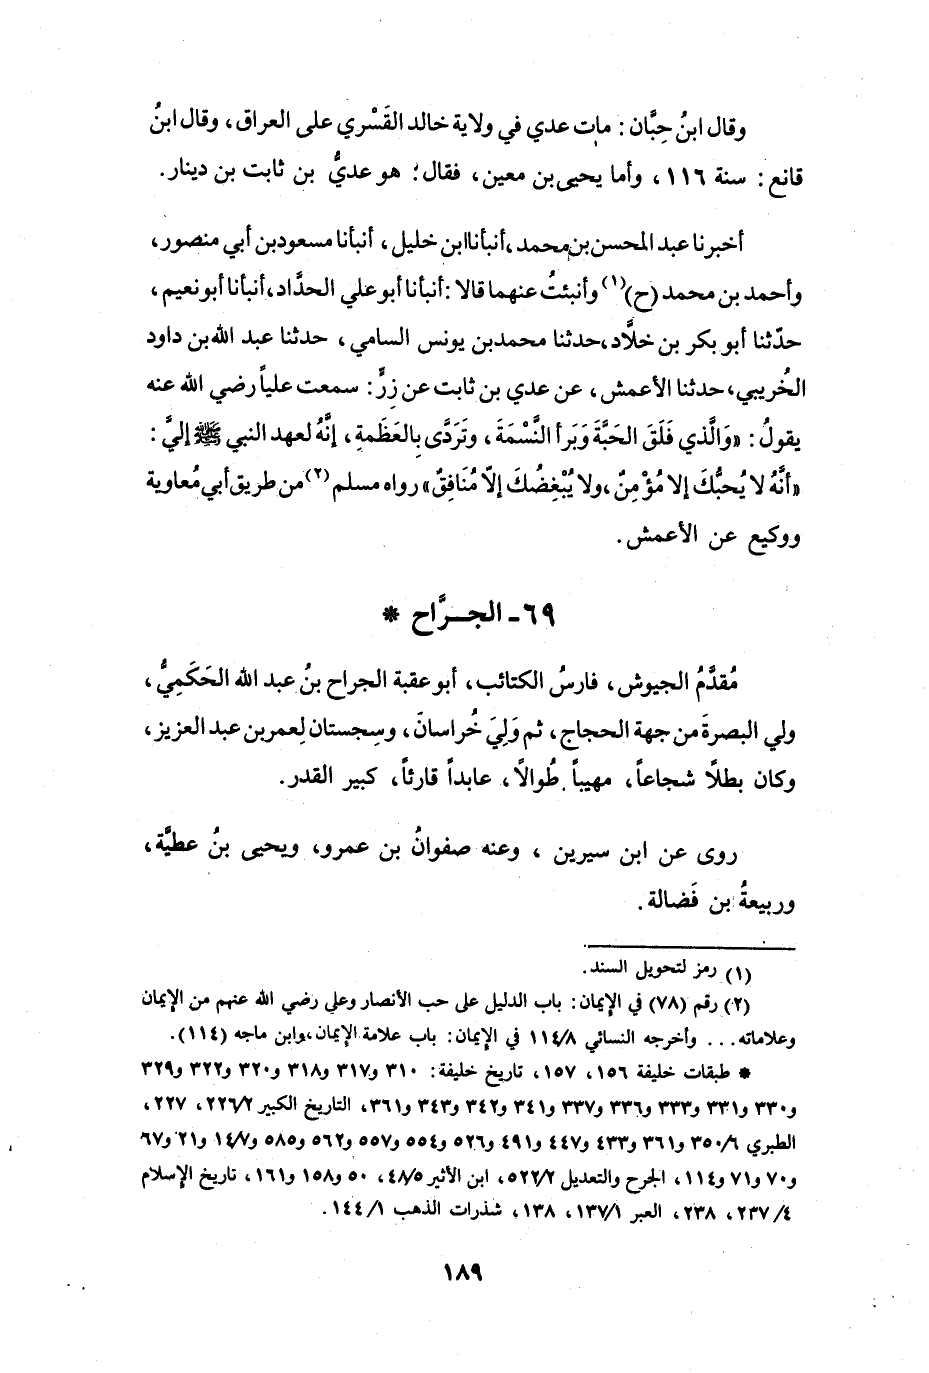 وقال ابنُ حِبَّان : مات عدي في ولاية خالد القَسْري على العراق ، وقال ابنُ
قانع : سنة ١١٦ ، وأما يحيى بن معين ، فقال : هو عديُّ بن ثابت بن دينار .
أخبرنا عبد المحسن بن محمد ، أنبأنا ابن خليل ، أنبأنا مسعود بن أبي منصور ،
وأحمد بن محمد (ح)(١) وأنبئتُ عنهما قالا : أنبأنا أبو علي الحدَّاد ، أنبأنا أبو نعيم ،
حدّثنا أبو بكر بن خلَّاد ، حدثنا محمد بن يونس السامي ، حدثنا عبد الله بن داود
الخُريبي ، حدثنا الأعمش ، عن عدي بن ثابت عن زِرٍّ : سمعت علياً رضي الله عنه
يقولُ : «وَالَّذي فَلَقَ الحَبَّةَ وَبَرأ النَّسْمَةَ ، وتَرَدَّى بِالعَظَمةِ ، إنَّهُ لعهد النبي ﷺ إليَّ :
«أنَّهُ لا يُحبُّكَ إلا مُؤْمِنٌ ، ولا يُبْغِضُكَ إلاّ مُنَافِقٌ» رواه مسلم (٢) من طريق أبي مُعاوية
ووكيع عن الأعمش .
٦٩ - الجـرَّاح *
مُقدَّمُ الجيوش ، فارسُ الكتائب ، أبو عقبة الجراح بنُ عبد الله الحَكَمِيُّ ،
ولي البصرةَ من جهة الحجاج ، ثم وَلِيَ خُراسانَ ، وسِجستان لِعمر بن عبد العزيز ،
وكان بطلًا شجاعاً ، مهيباً طُوالًا ، عابداً قارئاً ، كبير القدر .
روى عن ابن سيرين ، وعنه صفوانُ بن عمرو ، ويحيى بنُ عطيَّة ،
وربيعةُ بن فَضالة .
(١) رمز لتحويل السند .
(٢) رقم (٧٨) في الإيمان : باب الدليل على حب الأنصار وعلي رضي الله عنهم من الإيمان
وعلاماته . . . وأخرجه النسائي ١١٤/٨ في الإيمان : باب علامة الإيمان ، وابن ماجه (١١٤) .
* طبقات خليفة ١٥٦ ، ١٥٧ ، تاريخ خليفة : ٣١٠ و٣١٧ و٣١٨ و٣٢٠ و٣٢٢ و٣٢٩
و٣٣٠ و٣٣١ و٣٣٣ و٣٣٦ و٣٣٧ و٣٤١ و٣٤٢ و٣٤٣ و٣٦١ ، التاريخ الكبير ٢٢٦/٢ ، ٢٢٧ ،
الطبري ٣٥٠/٦ و٣٦١ و٤٣٣ و٤٤٧ و٤٩١ و٥٢٦ و٥٥٤ و٥٥٧ و٥٦٢ و٥٨٥ و١٤/٧ و٢١ و٦٧
و٧٠ و٧١ و١١٤ ، الجرح والتعديل ٥٢٢/٢ ، ابن الأثير ٤٨/٥ ، ٥٠ و١٥٨ و١٦١ ، تاريخ الإسلام
٢٣٧/٤ ، ٢٣٨ ، العبر ١٣٧/١ ، ١٣٨ ، شذرات الذهب ١٤٤/١ .
١٨٩